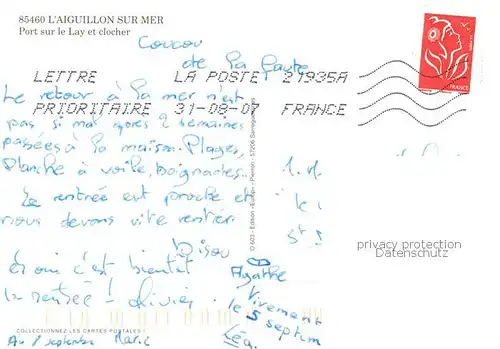 85460 L'AIGUILLON SUR MER
Port sur le Lay et clocher
Coucou
de la faute
LETTRE LA POSTE 21935A
PRIORITAIRE 31-08-07 FRANCE
FRANCE
Le retour à la mer n'est
pas si mal après 2 semaines
passées à la maison. Plages,
Planche à voile, baignades..
La rentrée est proche et
nous devons vite rentrer.
Bisou
Et oui c'est bientôt
la rentrée! Olivier.
Agathe
Vivement
le 5 septem
Léa.
privacy protection
Datenschutz
COLLECTIONNEZ LES CARTES POSTALES !
Au septembre Marie